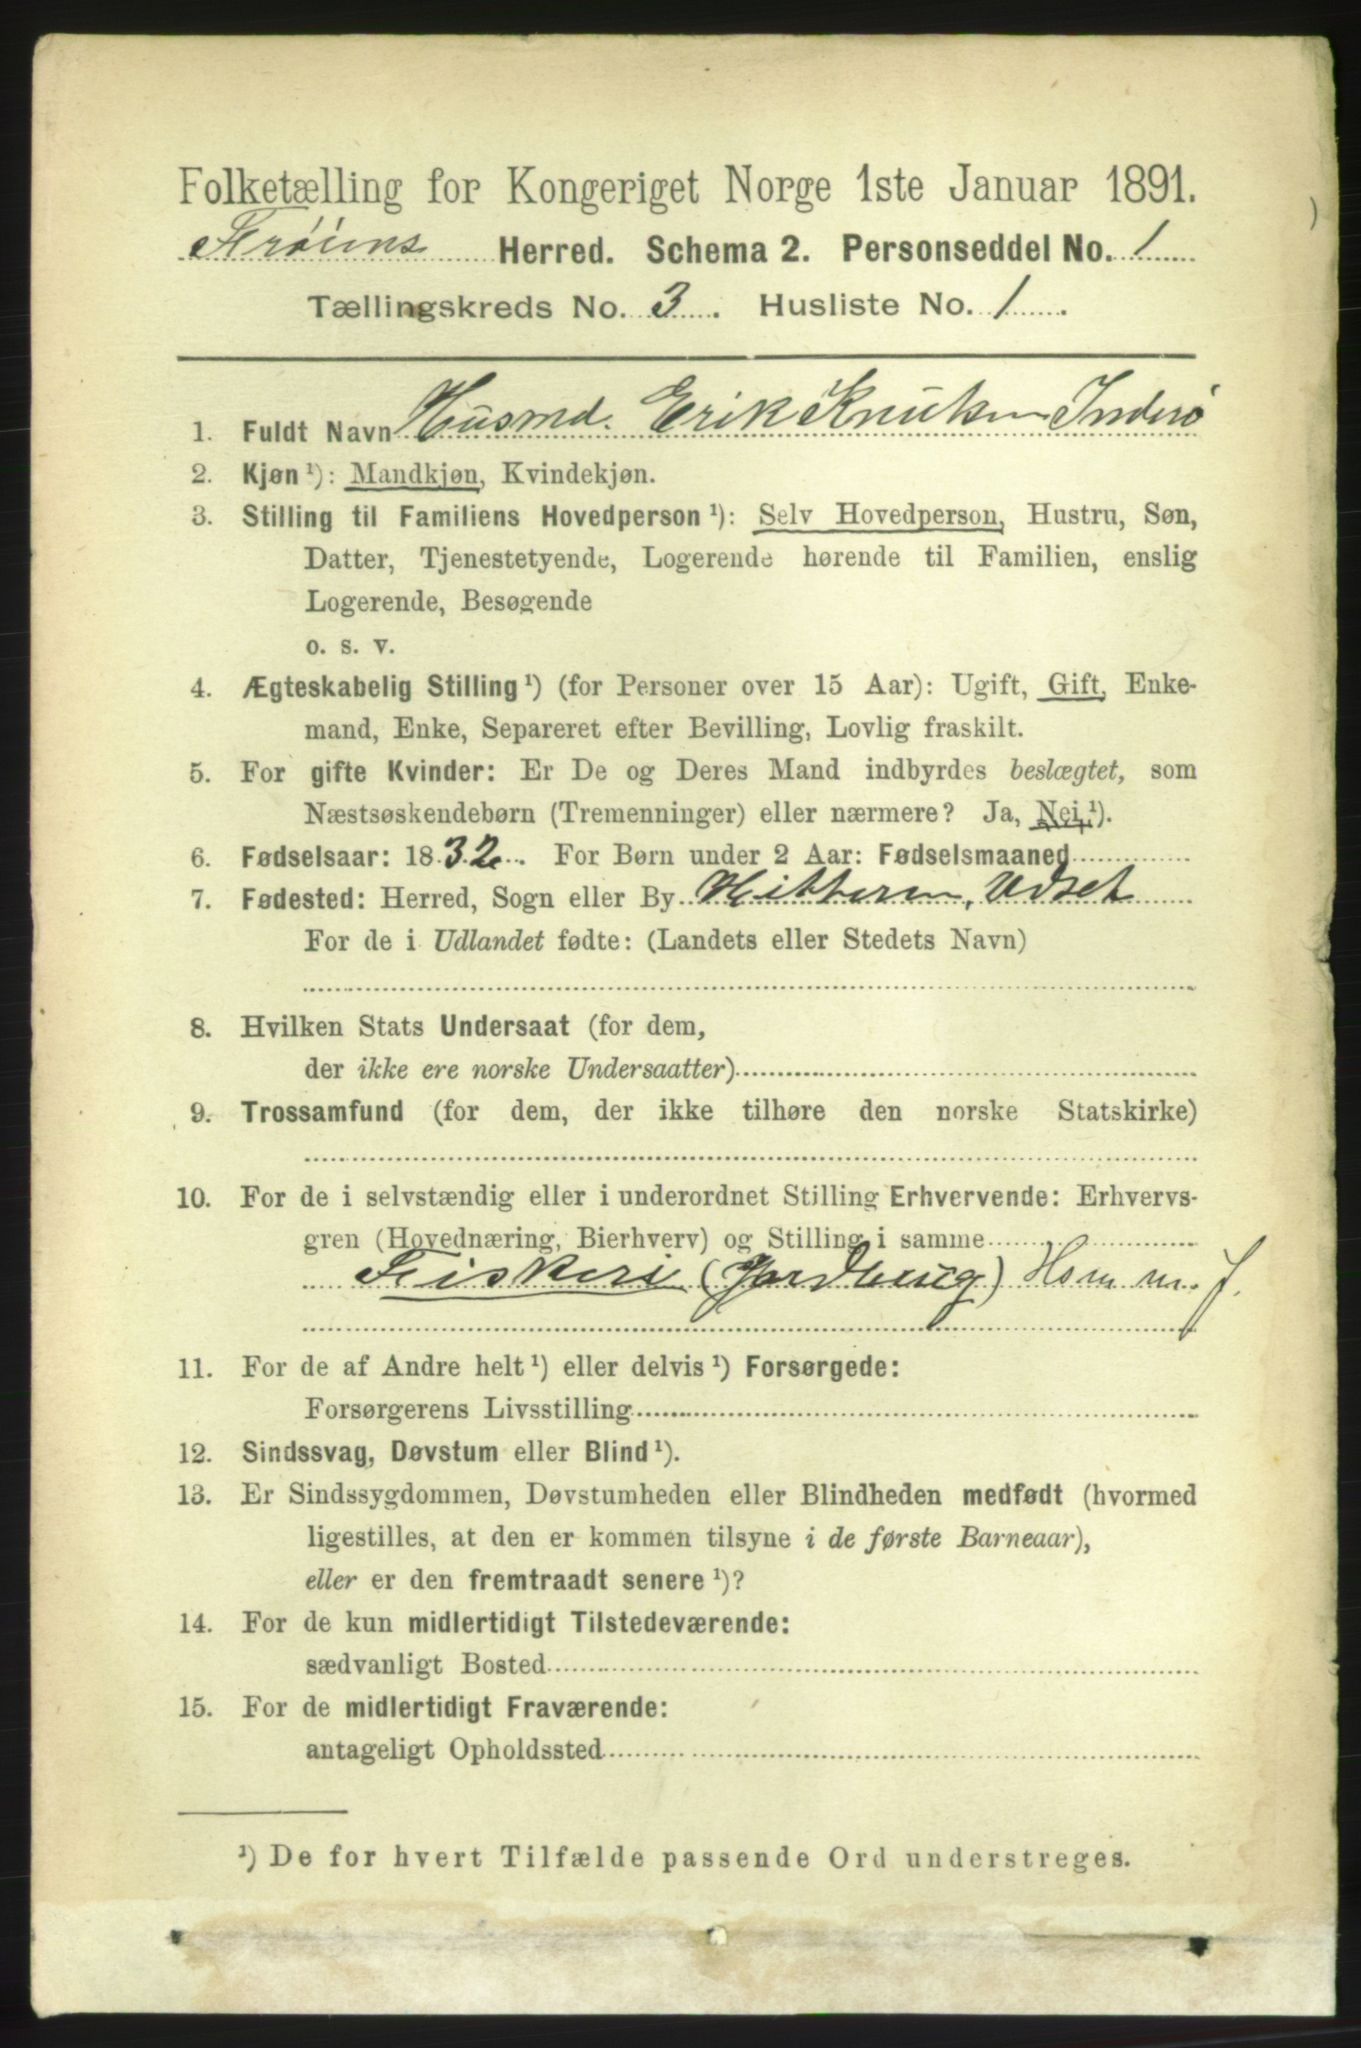 Folketælling for Kongeriget Norge 1ste Januar 1891.
Frøiens Herred. Schema 2. Personseddel No. 1
Tællingskreds No. 3. Husliste No. 1.
1. Fuldt Navn Husmd. Erik Knutsen Inderø
2. Kjøn ¹): Mandkjøn, Kvindekjøn.
3. Stilling til Familiens Hovedperson ¹): Selv Hovedperson, Hustru, Søn,
Datter, Tjenestetyende, Logerende hørende til Familien, enslig
Logerende, Besøgende
o. s. v.
4. Ægteskabelig Stilling ¹) (for Personer over 15 Aar): Ugift, Gift, Enke-
mand, Enke, Separeret efter Bevilling, Lovlig fraskilt.
5. For gifte Kvinder: Er De og Deres Mand indbyrdes beslægtet, som
Næstsøskendebørn (Tremenninger) eller nærmere? Ja, Nei, ¹).
6. Fødselsaar: 1832. For Børn under 2 Aar: Fødselsmaaned
7. Fødested: Herred, Sogn eller By Hitteren, Udset
For de i Udlandet fødte: (Landets eller Stedets Navn)
8. Hvilken Stats Undersaat (for dem,
der ikke ere norske Undersaatter)
9. Trossamfund (for dem, der ikke tilhøre den norske Statskirke)
10. For de i selvstændig eller i underordnet Stilling Erhvervende: Erhvervs-
gren (Hovednæring, Bierhverv) og Stilling i samme
Fiskeri (Jordbrug) Hsm m. J.
11. For de af Andre helt ¹) eller delvis ¹) Forsørgede:
Forsørgerens Livsstilling
12. Sindssvag, Døvstum eller Blind ¹).
13. Er Sindssygdommen, Døvstumheden eller Blindheden medfødt (hvormed
ligestilles, at den er kommen tilsyne i de første Barneaar),
eller er den fremtraadt senere ¹)?
14. For de kun midlertidigt Tilstedeværende:
sædvanligt Bosted
15. For de midlertidigt Fraværende:
antageligt Opholdssted
¹) De for hvert Tilfælde passende Ord understreges.